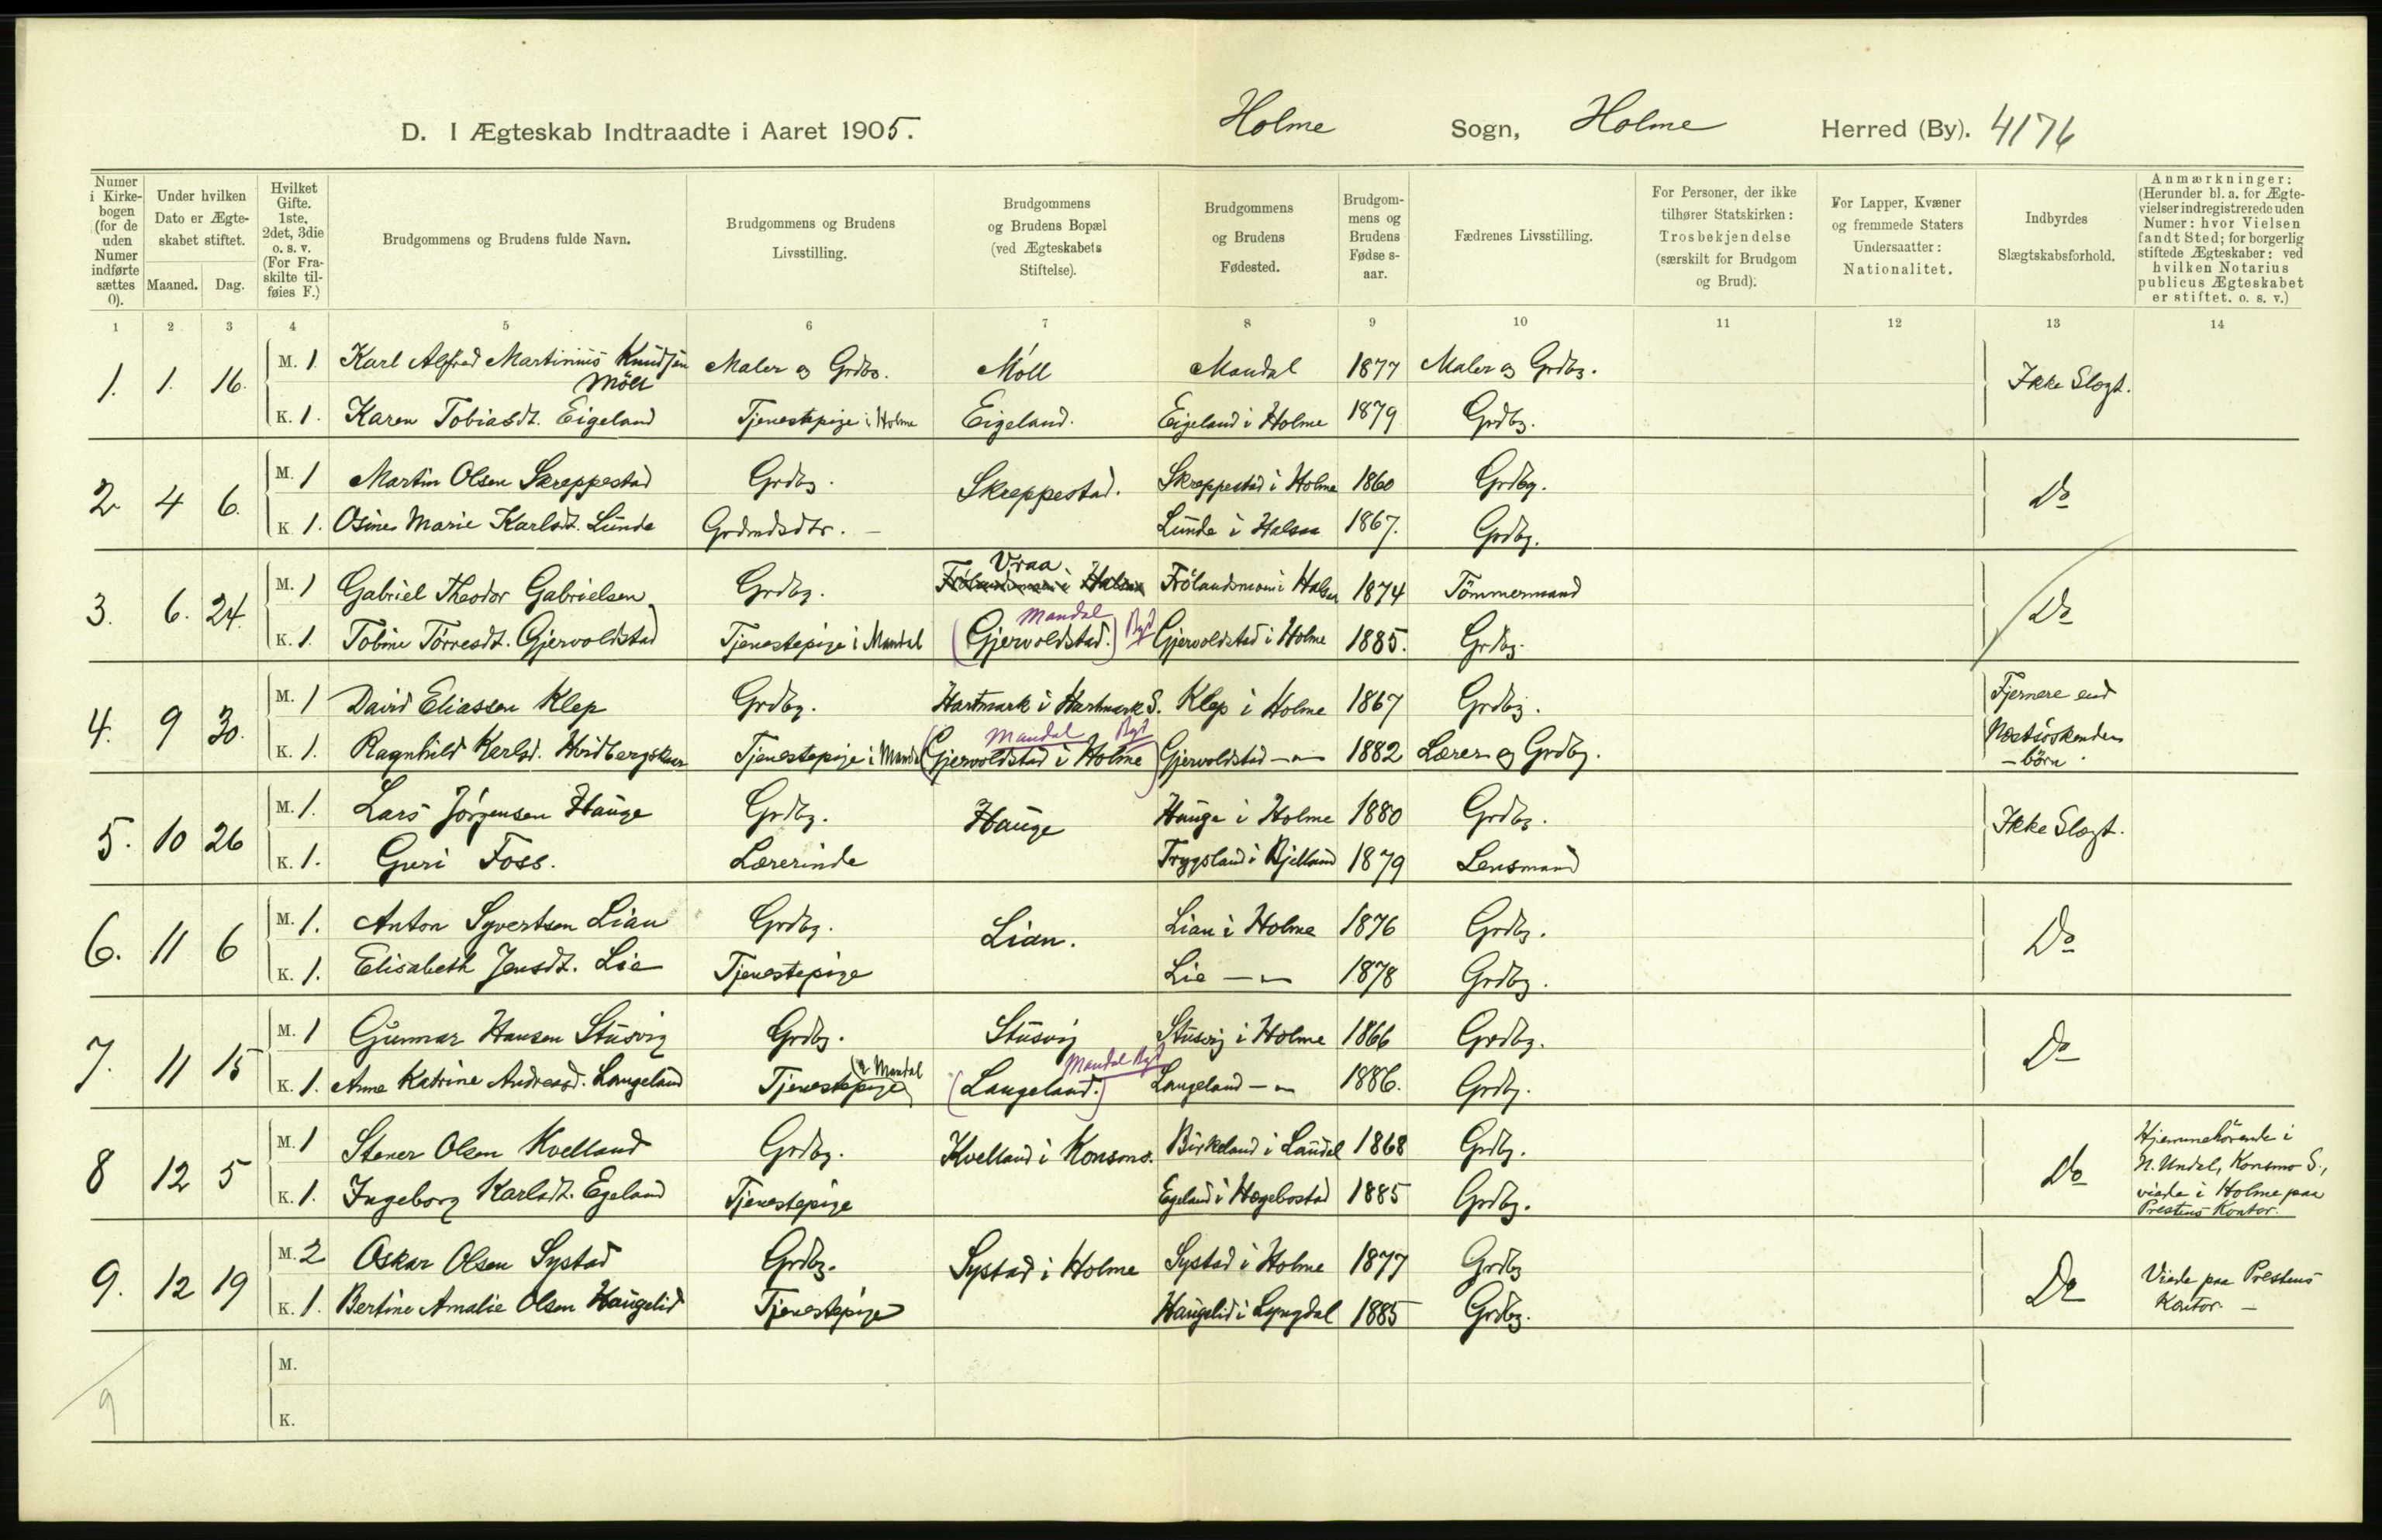 D. I Ægteskab Indtraadte i Aaret 1905. Holme Sogn, Holme Herred (By). 4176
Numer i Kirkebogen (for de uden Numer indførte sættes 0).
Under hvilken Dato er Ægteskabet stiftet.
Maaned. Dag.
Hvilket Gifte. 1ste, 2det, 3die o. s. v. (For Fraskilte tilføies F.)
Brudgommens og Brudens fulde Navn.
Brudgommens og Brudens Livsstilling.
Brudgommens og Brudens Bopæl (ved Ægteskabets Stiftelse).
Brudgommens og Brudens Fødested.
Brudgommens og Brudens Fødselsaar.
Fædrenes Livsstilling.
For Personer, der ikke tilhører Statskirken: Trosbekjendelse (særskilt for Brudgom og Brud).
For Lapper, Kvæner og fremmede Staters Undersaatter: Nationalitet.
Indbyrdes Slægtskabsforhold.
Anmærkninger: (Herunder bl. a. for Ægtevielser indregistrerede uden Numer: hvor Vielsen fandt Sted; for borgerlig stiftede Ægteskaber: ved hvilken Notarius publicus Ægteskabet er stiftet. o. s. v.)
1 2 3 4 5 6 7 8 9 10 11 12 13 14
1. 1. 16. M. 1 Karl Alfred Martinius Knudsen Möll Maler og Grdbr. Möll Mandal 1877 Maler og Grdbr. Ikke Slægt.
K. 1. Karen Tobiasdt. Eigeland Tjenestepige i Holme Eigeland. Eigeland i Holme 1879 Grdbg.
2. 4 6. M. 1 Martin Olsen Skreppestad Grdbg. Skreppestad. Skreppestad i Holme 1860 Grdbg. Do
K 1. Osine Marie Karlsdt. Lunde Grdmdsdtr. – Lunde i Halsaa 1867. Grdbg.
3. 6. 24. M. 1 Gabriel Theodor Gabrielsen Grdbg. Vraa Frölandsmoni Halsaa 1874 Tömmermand Do
K. 1. Tobine Törresdt. Gjervoldstad Tjenestepige i Mandal (Gjervoldstad.) Mandal Byd Gjervoldstad i Holme 1885. Grdbg.
4. 9 30. M. 1 David Eliassen Klep Grdbg. Hartmark i Hartmark S. Klep i Holme 1867 Grdbg. Fjernere end Næstsöskendebörn.
K. 1. Ragnhild Karlsd. Tjenestepige i Mandal (Gjervoldstad i Holme) Mandal Byd Gjervoldstad –"– 1882 Lærer og Grdbg.
5. 10 26 M. 1. Lars Jörgensen Hauge Grdbg. Hauge Hauge i Holme 1880 Grdbg. Ikke Slægt.
K. 1. Guri Foss. Lærerinde Trygsland i Bjelland 1879 Lensmand
6. 11 6 M. 1. Anton Syvertsen Lian Grdbg. Lian. Lian i Holme 1876 Grdbg. Do
K. 1. Elisabeth Jensdt. Lie Tjenestepige Lie –"– 1878 Grdbg.
7. 11 15 M. 1 Gunnar Hansen Stusvig Grdbg. Stusvig Stusvig i Holme 1866 Grdbg. Do
K. 1. Anna Katrine Andreasd. Langeland Tjenestepige (i Mandal (Langeland.) Mandal Byd Langeland –"– 1886. Grdbg.
8 12 5 M. 1 Stener Olsen Kvelland Grdbg. Kvelland i Konsmo. Birkeland i Laudal 1868 Grdbg. Do Hjemmehörende i N. Undal, Konsmo S., viede i Holme paa Prestens Kontor.
K. 1. Ingeborg Karlsdt. Egeland Tjenestepige Egeland i Hægebostad 1885 Grdbg.
9. 12 19 M. 2 Oskar Olsen Systad Grdbg. Systad i Holme Systad i Holme 1877 Grdbg Do Viede paa Prestens Kontor. –
K. 1. Bertine Amalie Olsen Haugelid Tjenestepige Haugelid i Lyngdal 1885 Grdbg.
9
M.
K.